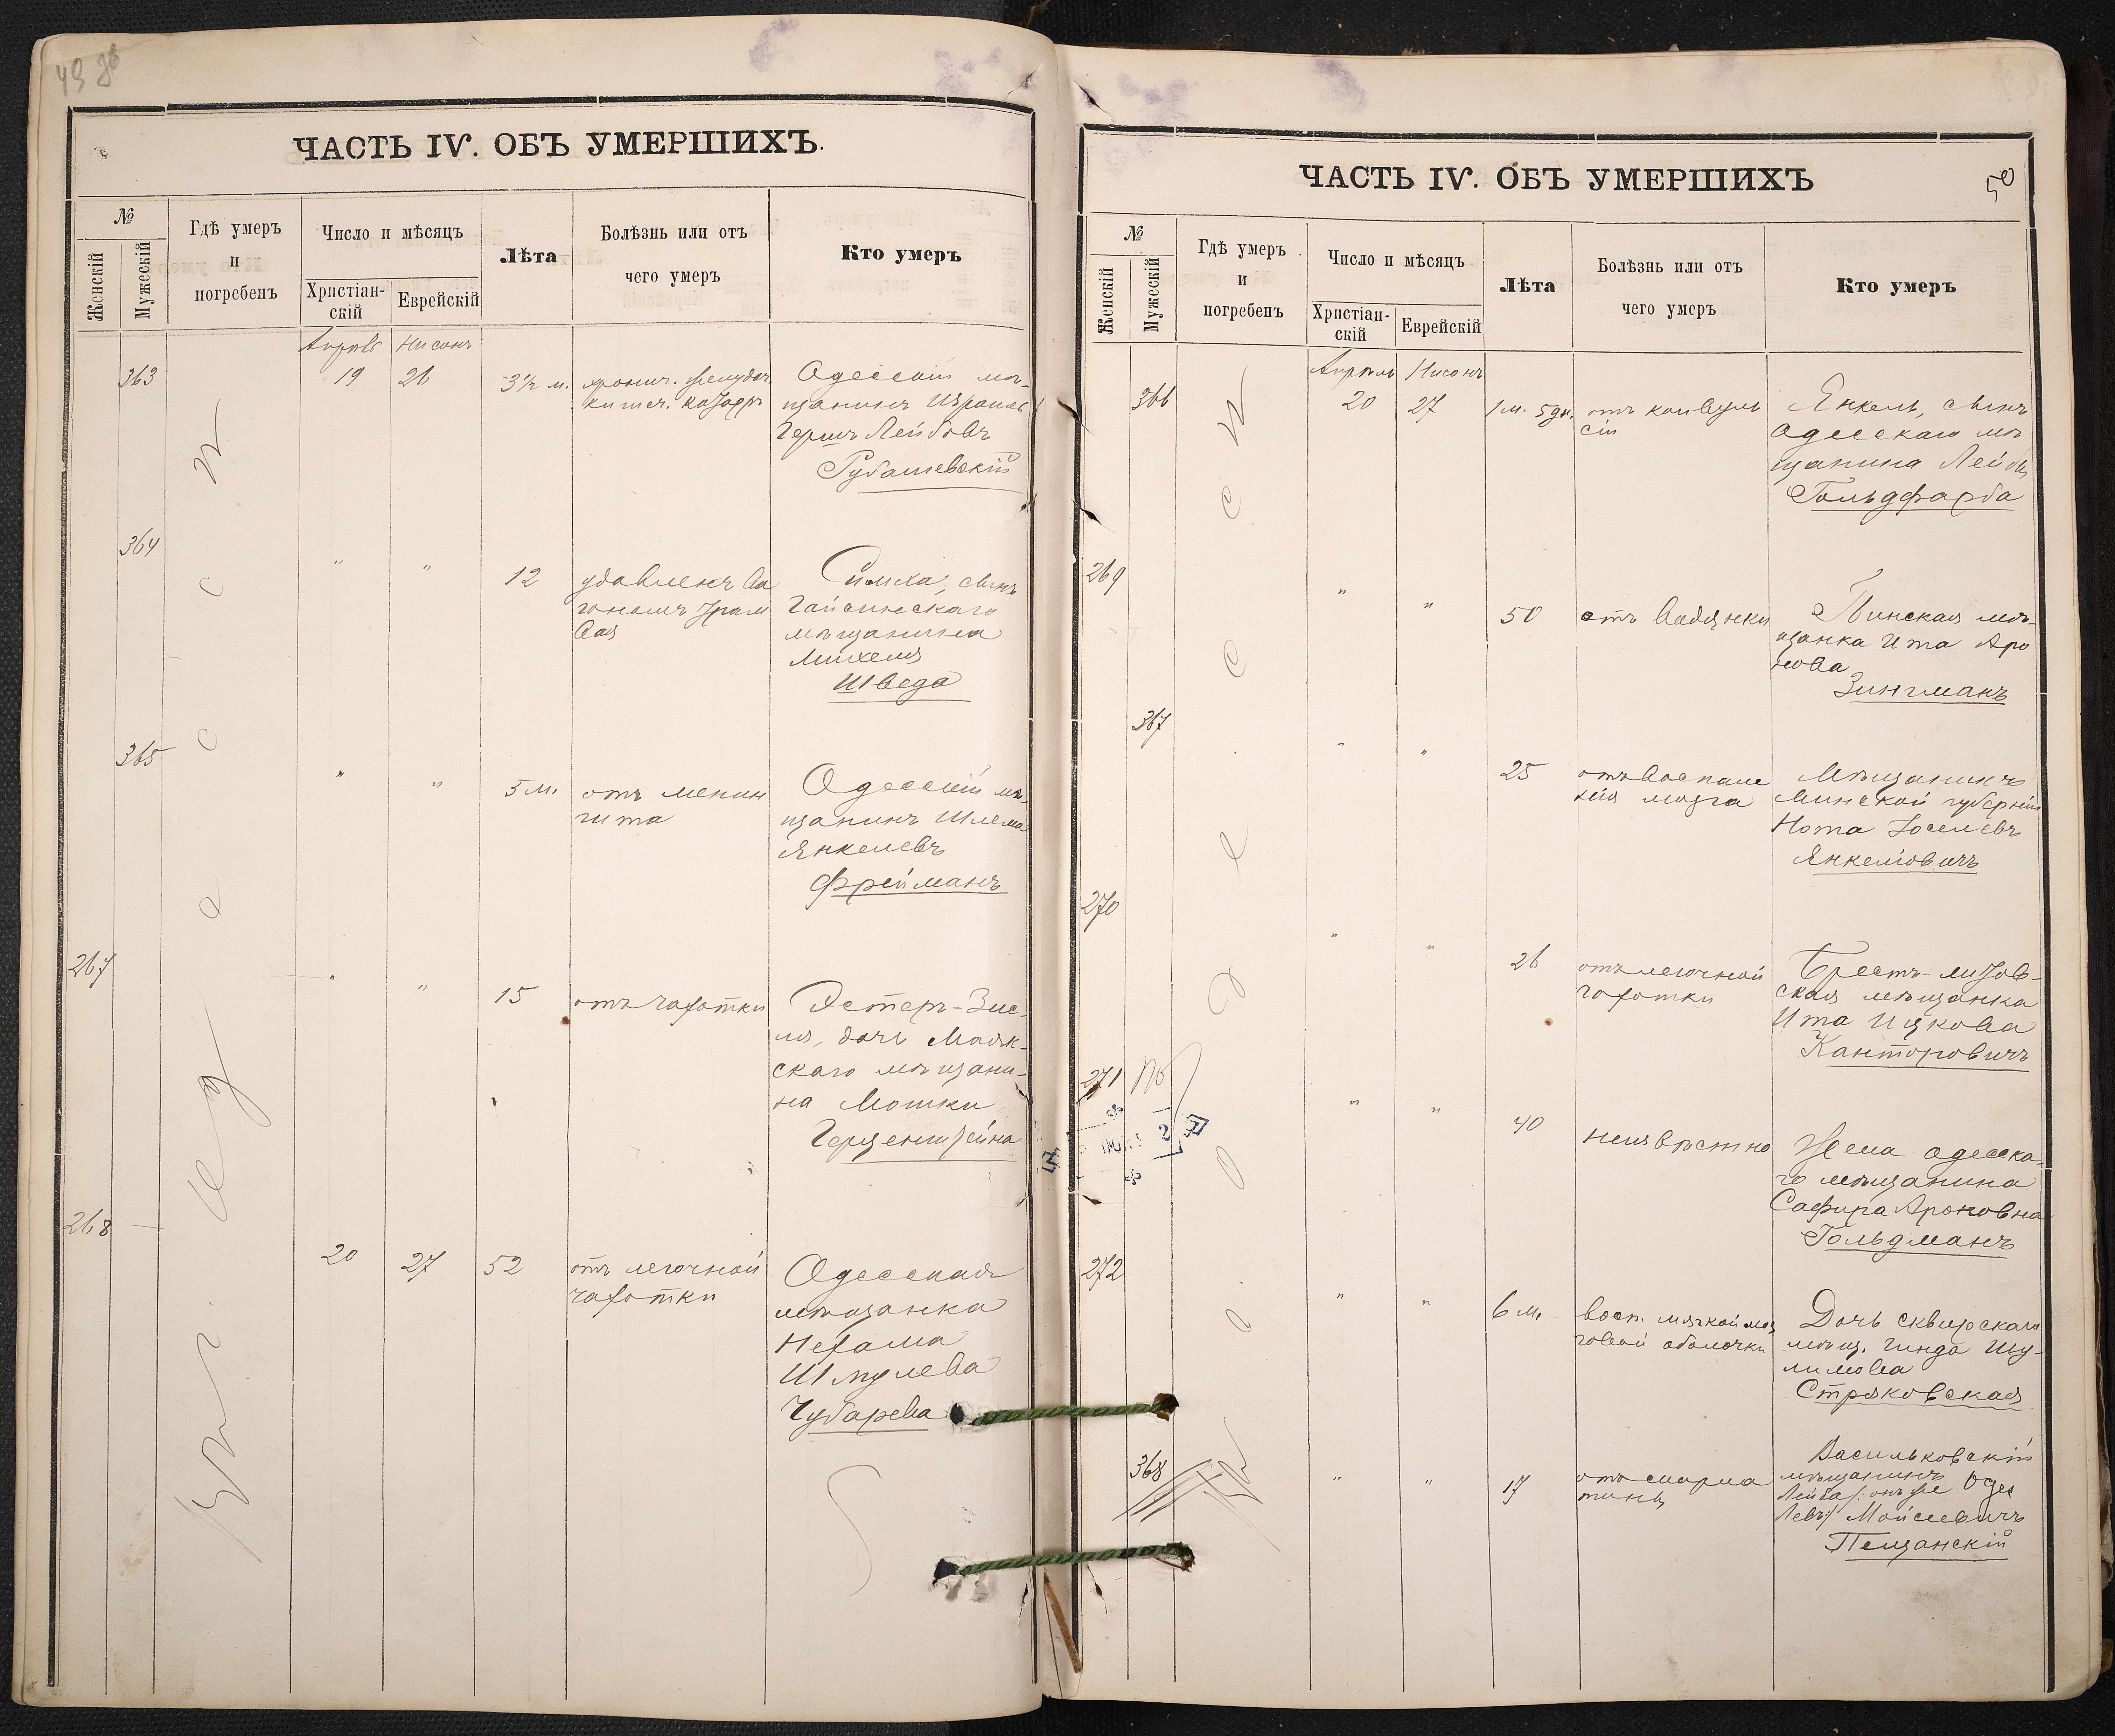 49 об
ЧАСТЬ IV. ОБЪ УМЕРШИХЪ.
№
Женскій
Мужескій
Гдѣ умеръ
и
погребенъ
Число и мѣсяцъ
Христіан-
скій
Еврейскій
Лѣта
Болѣзнь или отъ
чего умеръ
Кто умеръ
Апрѣль Нисонъ
363 19 26 3½ м. хронич. желудоч.
кишеч. катарръ
Одесскій мѣ-
щанинъ Израиль
Гершъ Лейбовъ
Рубашевскій
364 " " 12 удавленъ ва
гономъ трам
вая
Симха, сынъ
Гайсинскаго
мѣщанина
Михеля
Шведа
365 " " 5 м. отъ менин
гита
Одесскій мѣ-
щанинъ Шлема
Янкелевъ
Фрейманъ
267 " " 15 отъ чахотки
Эстеръ-Зис-
ля, дочь Маяк-
скаго мѣщани-
на Мошки
Герценштейна
268 20 27 52 отъ легочной
чахотки
Одесская
мѣщанка
Нехама
Шмулева
Чубарева
ЧАСТЬ IV. ОБЪ УМЕРШИХЪ
50
№
Женскій
Мужескій
Гдѣ умеръ
и
погребенъ
Число и мѣсяцъ
Христіан-
скій
Еврейскій
Лѣта
Болѣзнь или отъ
чего умеръ
Кто умеръ
Апрѣль Нисонъ
366 20 27 1 м. 5 дн. отъ конвуль
сій
Янкель, сынъ
одесскаго мѣ
щанина Лейбы
Гольдфарба
269 " " 50 отъ водянки
Пинская мѣ-
щанка Ита Аро
нова
Зингманъ
367 " " 25 отъ воспале
нія мозга
Мѣщанинъ
Минской губерніи
Нота Іоселевъ
Янкелiовичъ
270 " " 26 отъ легочной
чахотки
Брестъ-литов-
ская мѣщанка
Ита Ицкова
Канторовичъ
271 " " 40 неизвѣстно
Жена одесска-
го мѣщанина
Сафира Ароновна
Гольдманъ
272 " " 6 м. восп. мягкой моз
говой оболочки
Дочь сквирскаго
мѣщ. Гинда Шу-
лимова
Стряковская
368 " " 17 отъ скарла
тины
Васильковскій
мѣщанинъ
Лейба /: онъ же
Левъ :/ Мойсеевичъ
Пещанскій